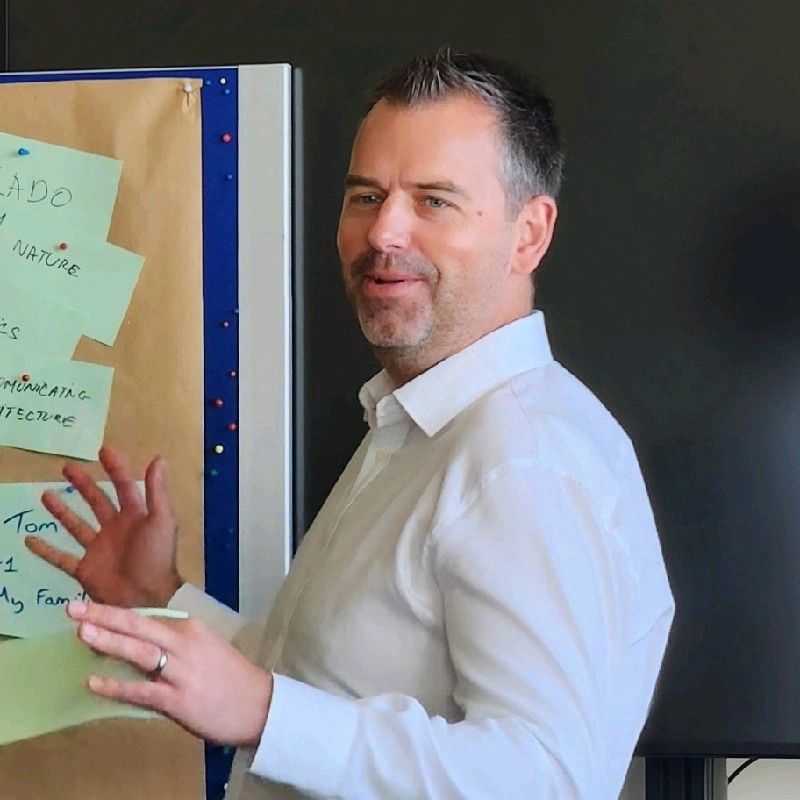 LADO
NATURE
CS
OMUNICATING
ITECTURE
Tom
-1
My Fami